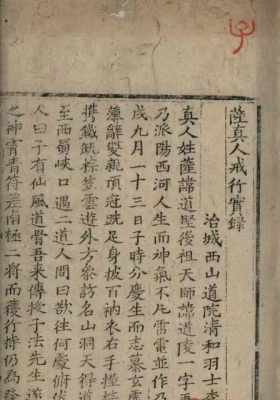 薩真人戒行實錄
治城西山道院清和羽士李
真人姓薩諱道堅後祖天師諱道陵一字
乃派陽西河人生而神氣不凡雷電並作乃
戌九月一十三日子時分慶生而志慕玄
薄辭雙親頂冠跣足身披百衲衣右手握
携鐵瓢棕笠雲遊外方叅訪名山洞天得道
至西蜀峽口遇二道人問曰欲往何處俯
人曰子有仙風道骨吾來傳授子法先生遂
之神霄青符差南極二將而護行持仍為